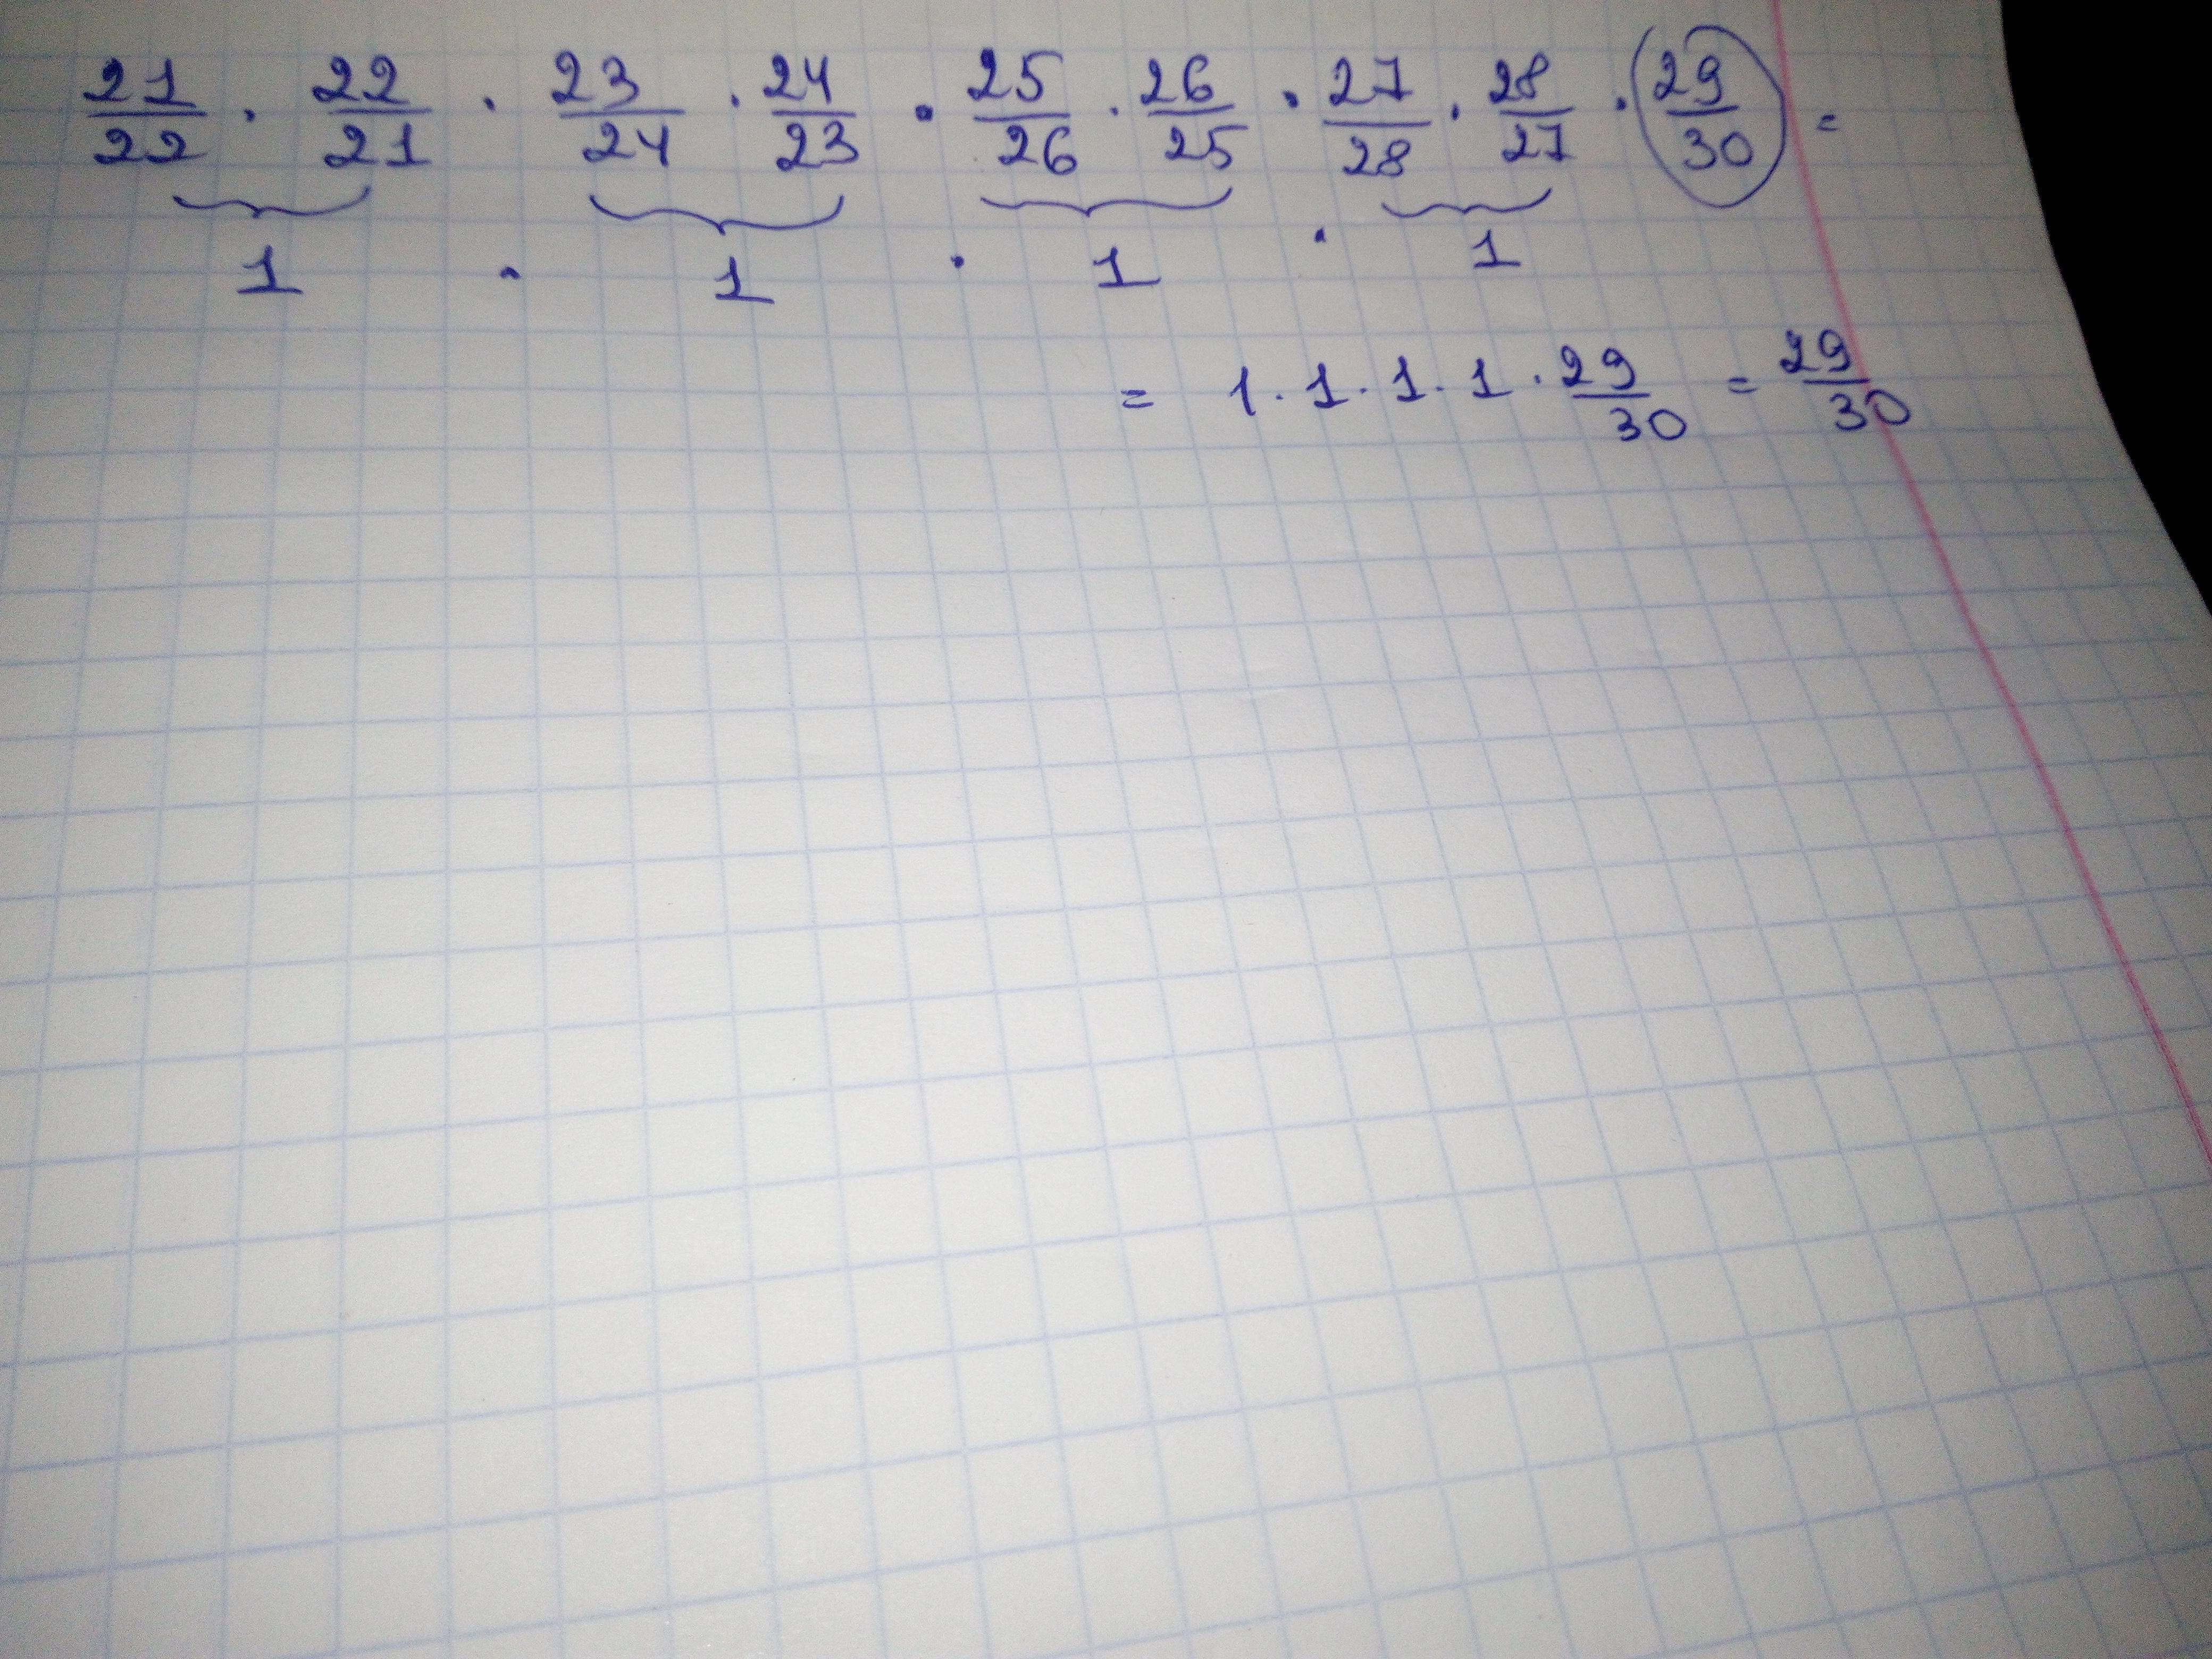 21/22 · 22/21 · 23/24 · 24/23 · 25/26 · 26/25 · 27/28 · 28/27 · 29/30 =
1 · 1 · 1 · 1
= 1 · 1 · 1 · 1 · 29/30 = 29/30